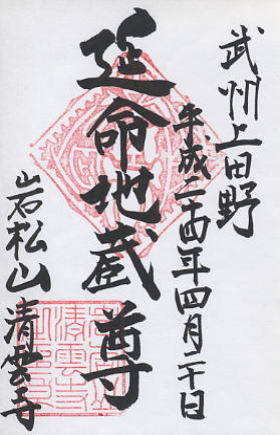 武州上田野
平成二十四年四月二十日
延命地蔵尊
岩松山 清雲寺